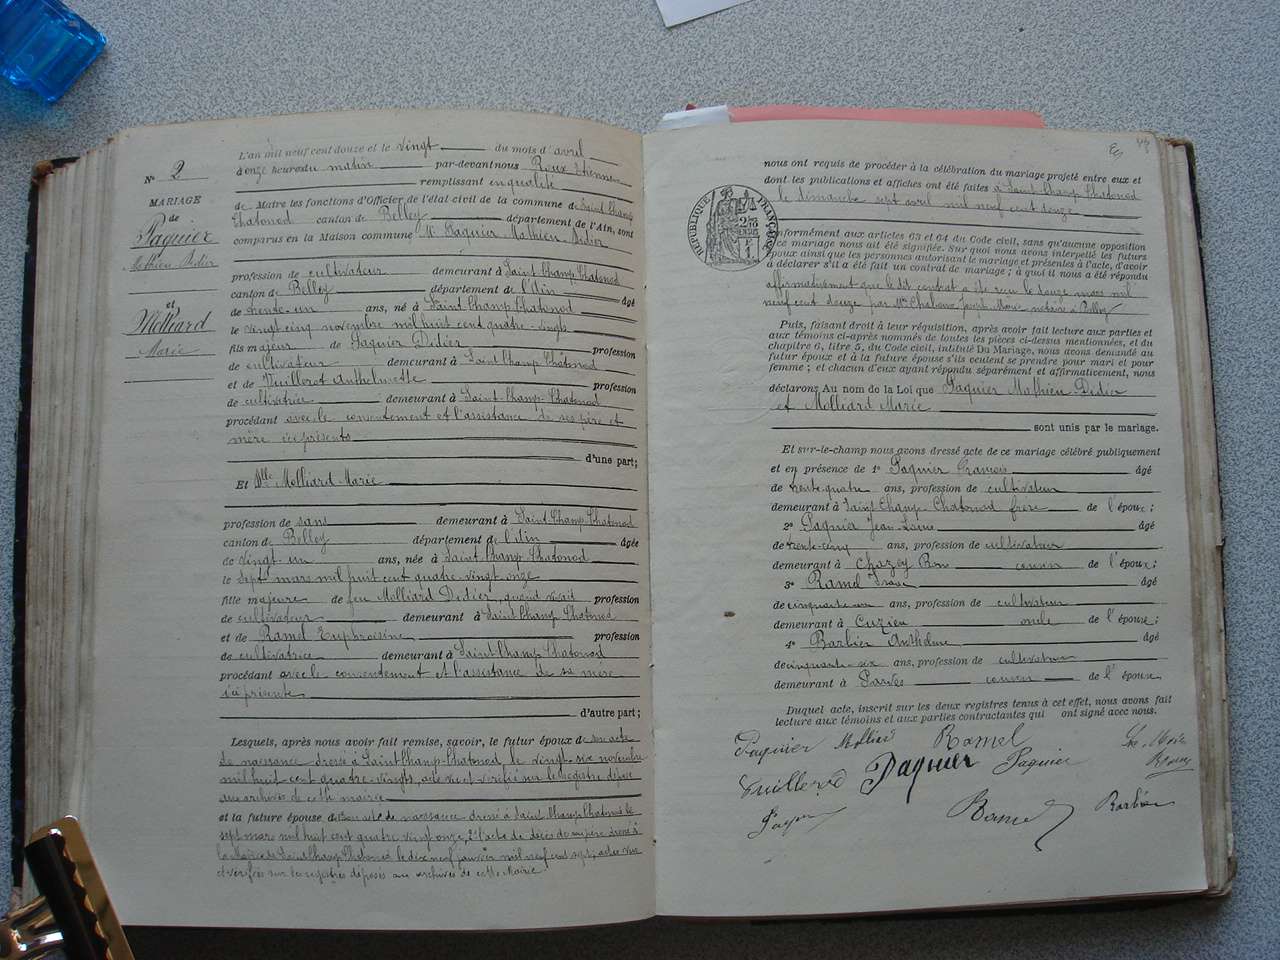 N° 2
MARIAGE
de
Paquier
Mathieu Didier
et
Molliard
Marie
L'an mil neuf cent douze et le vingt du mois d'avril
à onze heures du matin par-devant nous Roux Etienne
remplissant en qualité
de Maire les fonctions d'Officier de l'état civil de la commune de Saint Champ
Chatonod canton de Belley département de l'Ain, sont
comparus en la Maison commune Mr Paquier Mathieu Didier
profession de cultivateur demeurant à Saint Champ Chatonod
canton de Belley département de l'Ain âgé
de trente-un ans, né à Saint Champ Chatonod
le vingt cinq novembre mil huit cent quatre-vingts
fils majeur de Paquier Didier profession
de cultivateur demeurant à Saint Champ Chatonod
et de Vuillerot Anthelmette profession
de cultivatrice demeurant à Saint-Champ-Chatonod
procédant avec le consentement et l'assistance de ses père et
mère ici présents
d'une part;
Et Mlle Molliard Marie
profession de sans demeurant à Saint Champ Chatonod
canton de Belley département de l'Ain âgée
de vingt-un ans, née à Saint Champ Chatonod
le sept mars mil huit cent quatre vingt onze
fille majeure de feu Molliard Didier, quand vivait profession
de cultivateur demeurant à Saint Champ Chatonod
et de Ramel Euphroisine profession
de cultivatrice demeurant à Saint Champ Chatonod
procédant avec le consentement et l'assistance de sa mère
ici présente
d'autre part;
Lesquels, après nous avoir fait remise, savoir, le futur époux de son acte
de naissance dressé à Saint Champ-Chatonod le vingt-six novembre
mil huit cent quatre vingts, acte vu et vérifié sur le registre déposé
aux archives de cette mairie
et la future épouse de son acte de naissance dressé à Saint Champ Chatonod le
sept mars mil huit cent quatre vingt onze, 2° l'acte de décès de son père dressé à
la Mairie de Saint Champ Chatonod le dix neuf janvier mil neuf cent sept, actes vus
et vérifiés sur les registres déposés aux archives de cette Mairie.
RÉPUBLIQUE FRANÇAISE
nous ont requis de procéder à la célébration du mariage projeté entre eux et
dont les publications et affiches ont été faites à Saint Champ Chatonod
le dimanche sept avril mil neuf cent douze
Conformément aux articles 63 et 64 du Code civil, sans qu'aucune opposition
à ce mariage nous ait été signifiée. Sur quoi nous avons interpellé les futurs
époux ainsi que les personnes autorisant le mariage et présentes à l'acte, d'avoir
à déclarer s'il a été fait un contrat de mariage; à quoi il nous a été répondu
affirmativement que le dit contrat a été reçu le douze mars mil
neuf cent douze par Me Joseph Marie notaire à Belley
Puis, faisant droit à leur réquisition, après avoir fait lecture aux parties et
aux témoins ci-après nommés de toutes les pièces ci-dessus mentionnées, et du
chapitre 6, titre 5, du Code civil, intitulé Du Mariage, nous avons demandé au
futur époux et à la future épouse s'ils veulent se prendre pour mari et pour
femme; et chacun d'eux ayant répondu séparément et affirmativement, nous
déclarons Au nom de la Loi que Paquier Mathieu-Didier
et Molliard Marie
sont unis par le mariage.
Et sur-le-champ nous avons dressé acte de ce mariage célébré publiquement
et en présence de 1° Paquier François âgé
de trente-quatre ans, profession de cultivateur
demeurant à Saint Champ Chatonod frère de l'époux;
2° Paquier Jean-Louis âgé
de trente-cinq ans, profession de cultivateur
demeurant à Chazey Bons cousin de l'époux;
3° Ramel âgé
de cinquante ans, profession de cultivateur
demeurant à Cuzieu oncle de l'épouse;
4° Barbier Anthelme âgé
de cinquante-six ans, profession de cultivateur
demeurant à Parves cousin de l'époux.
Duquel acte, inscrit sur les deux registres tenus à cet effet, nous avons fait
lecture aux témoins et aux parties contractantes qui ont signé avec nous.
Paquier Molliard Ramel
Vuillerod Paquier Paquier
Ramel Barbier